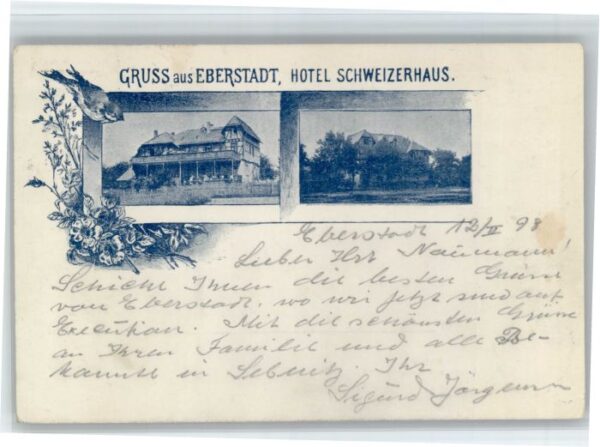 GRUSS aus EBERSTADT, HOTEL SCHWEIZERHAUS.
Eberstadt 12/II 98
Lieber Herr Naumann!
Schicke Ihnen die besten Grüsse
von Eberstadt, wo wir jetzt sind auf
Execution. Mit die schönsten Grüsse
an Ihren Familie und alle Be-
kannte in Sebnitz. Ihr
Sigurd